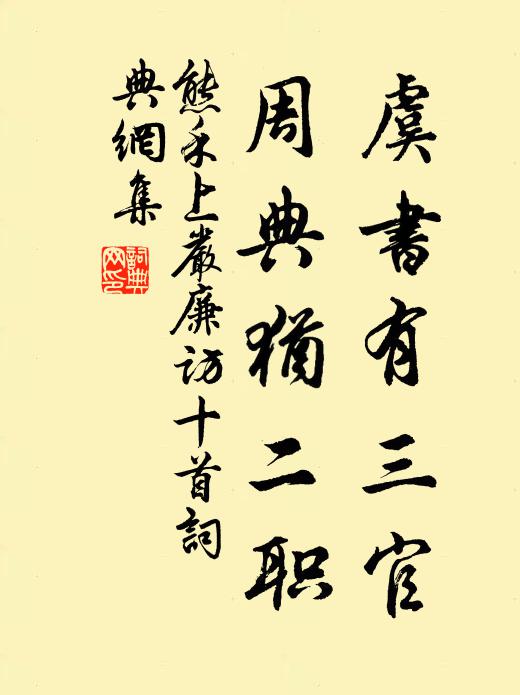 虞書有三官
周典猶二职
熊禾上嚴廉訪十首詞
典網集
詞典
网印